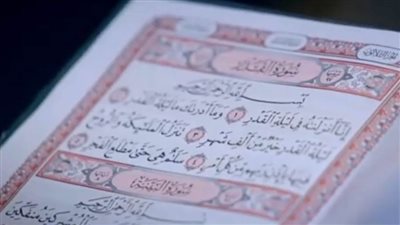 الجزء الثلاثون
سُورَةُ القَدْرِ
بِسْمِ اللَّهِ الرَّحْمَٰنِ الرَّحِيمِ
إِنَّا أَنزَلْنَاهُ فِي لَيْلَةِ الْقَدْرِ ١ وَمَا أَدْرَاكَ مَا لَيْلَةُ الْقَدْرِ ٢
لَيْلَةُ الْقَدْرِ خَيْرٌ مِّنْ أَلْفِ شَهْرٍ ٣ تَنَزَّلُ الْمَلَائِكَةُ وَالرُّوحُ
فِيهَا بِإِذْنِ رَبِّهِم مِّن كُلِّ أَمْرٍ ٤ سَلَامٌ هِيَ حَتَّىٰ مَطْلَعِ الْفَجْرِ ٥
سُورَةُ البَيِّنَةِ
بِسْمِ اللَّهِ الرَّحْمَٰنِ الرَّحِيمِ
وَالْمُشْرِكِينَ مُنفَكِّينَ